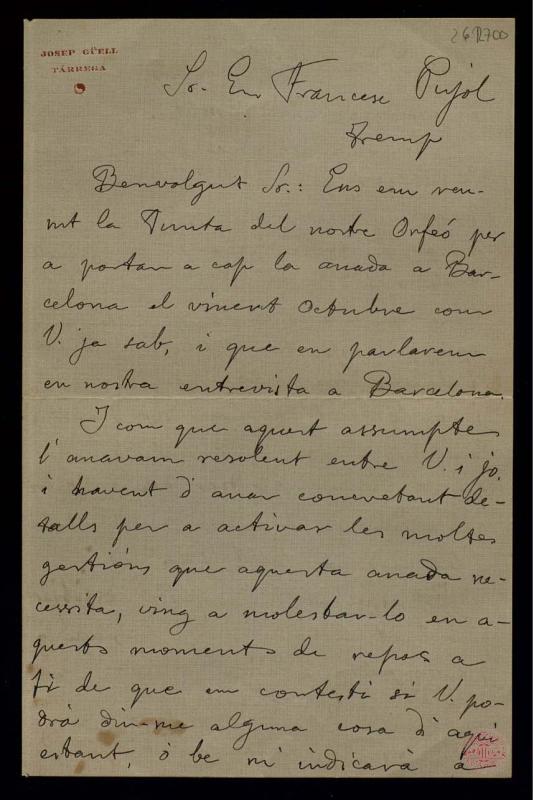 26 1700
JOSEP GÜELL
TÁRREGA
Sr. En Francesc Pujol
Tremp
Benvolgut Sr.: Ens em reu-
nit la Junta del nostre Orfeó per
a portar a cap la anada a Bar-
celona el vinent Octubre com
V. ja sab, i que en parlarem
en nostra entrevista a Barcelona.
I com que aquest assumpte
l'anavam resolent entre V. i jo,
i havent d'anar concretant de-
talls per a activar les moltes
gestións que aquesta anada ne-
cessita, ving a molestar-lo en a-
quests moments de repos a
fi de que em contesti si V. po-
drà dir-me alguna cosa d'aqui
estant, ó be m'indicarà a